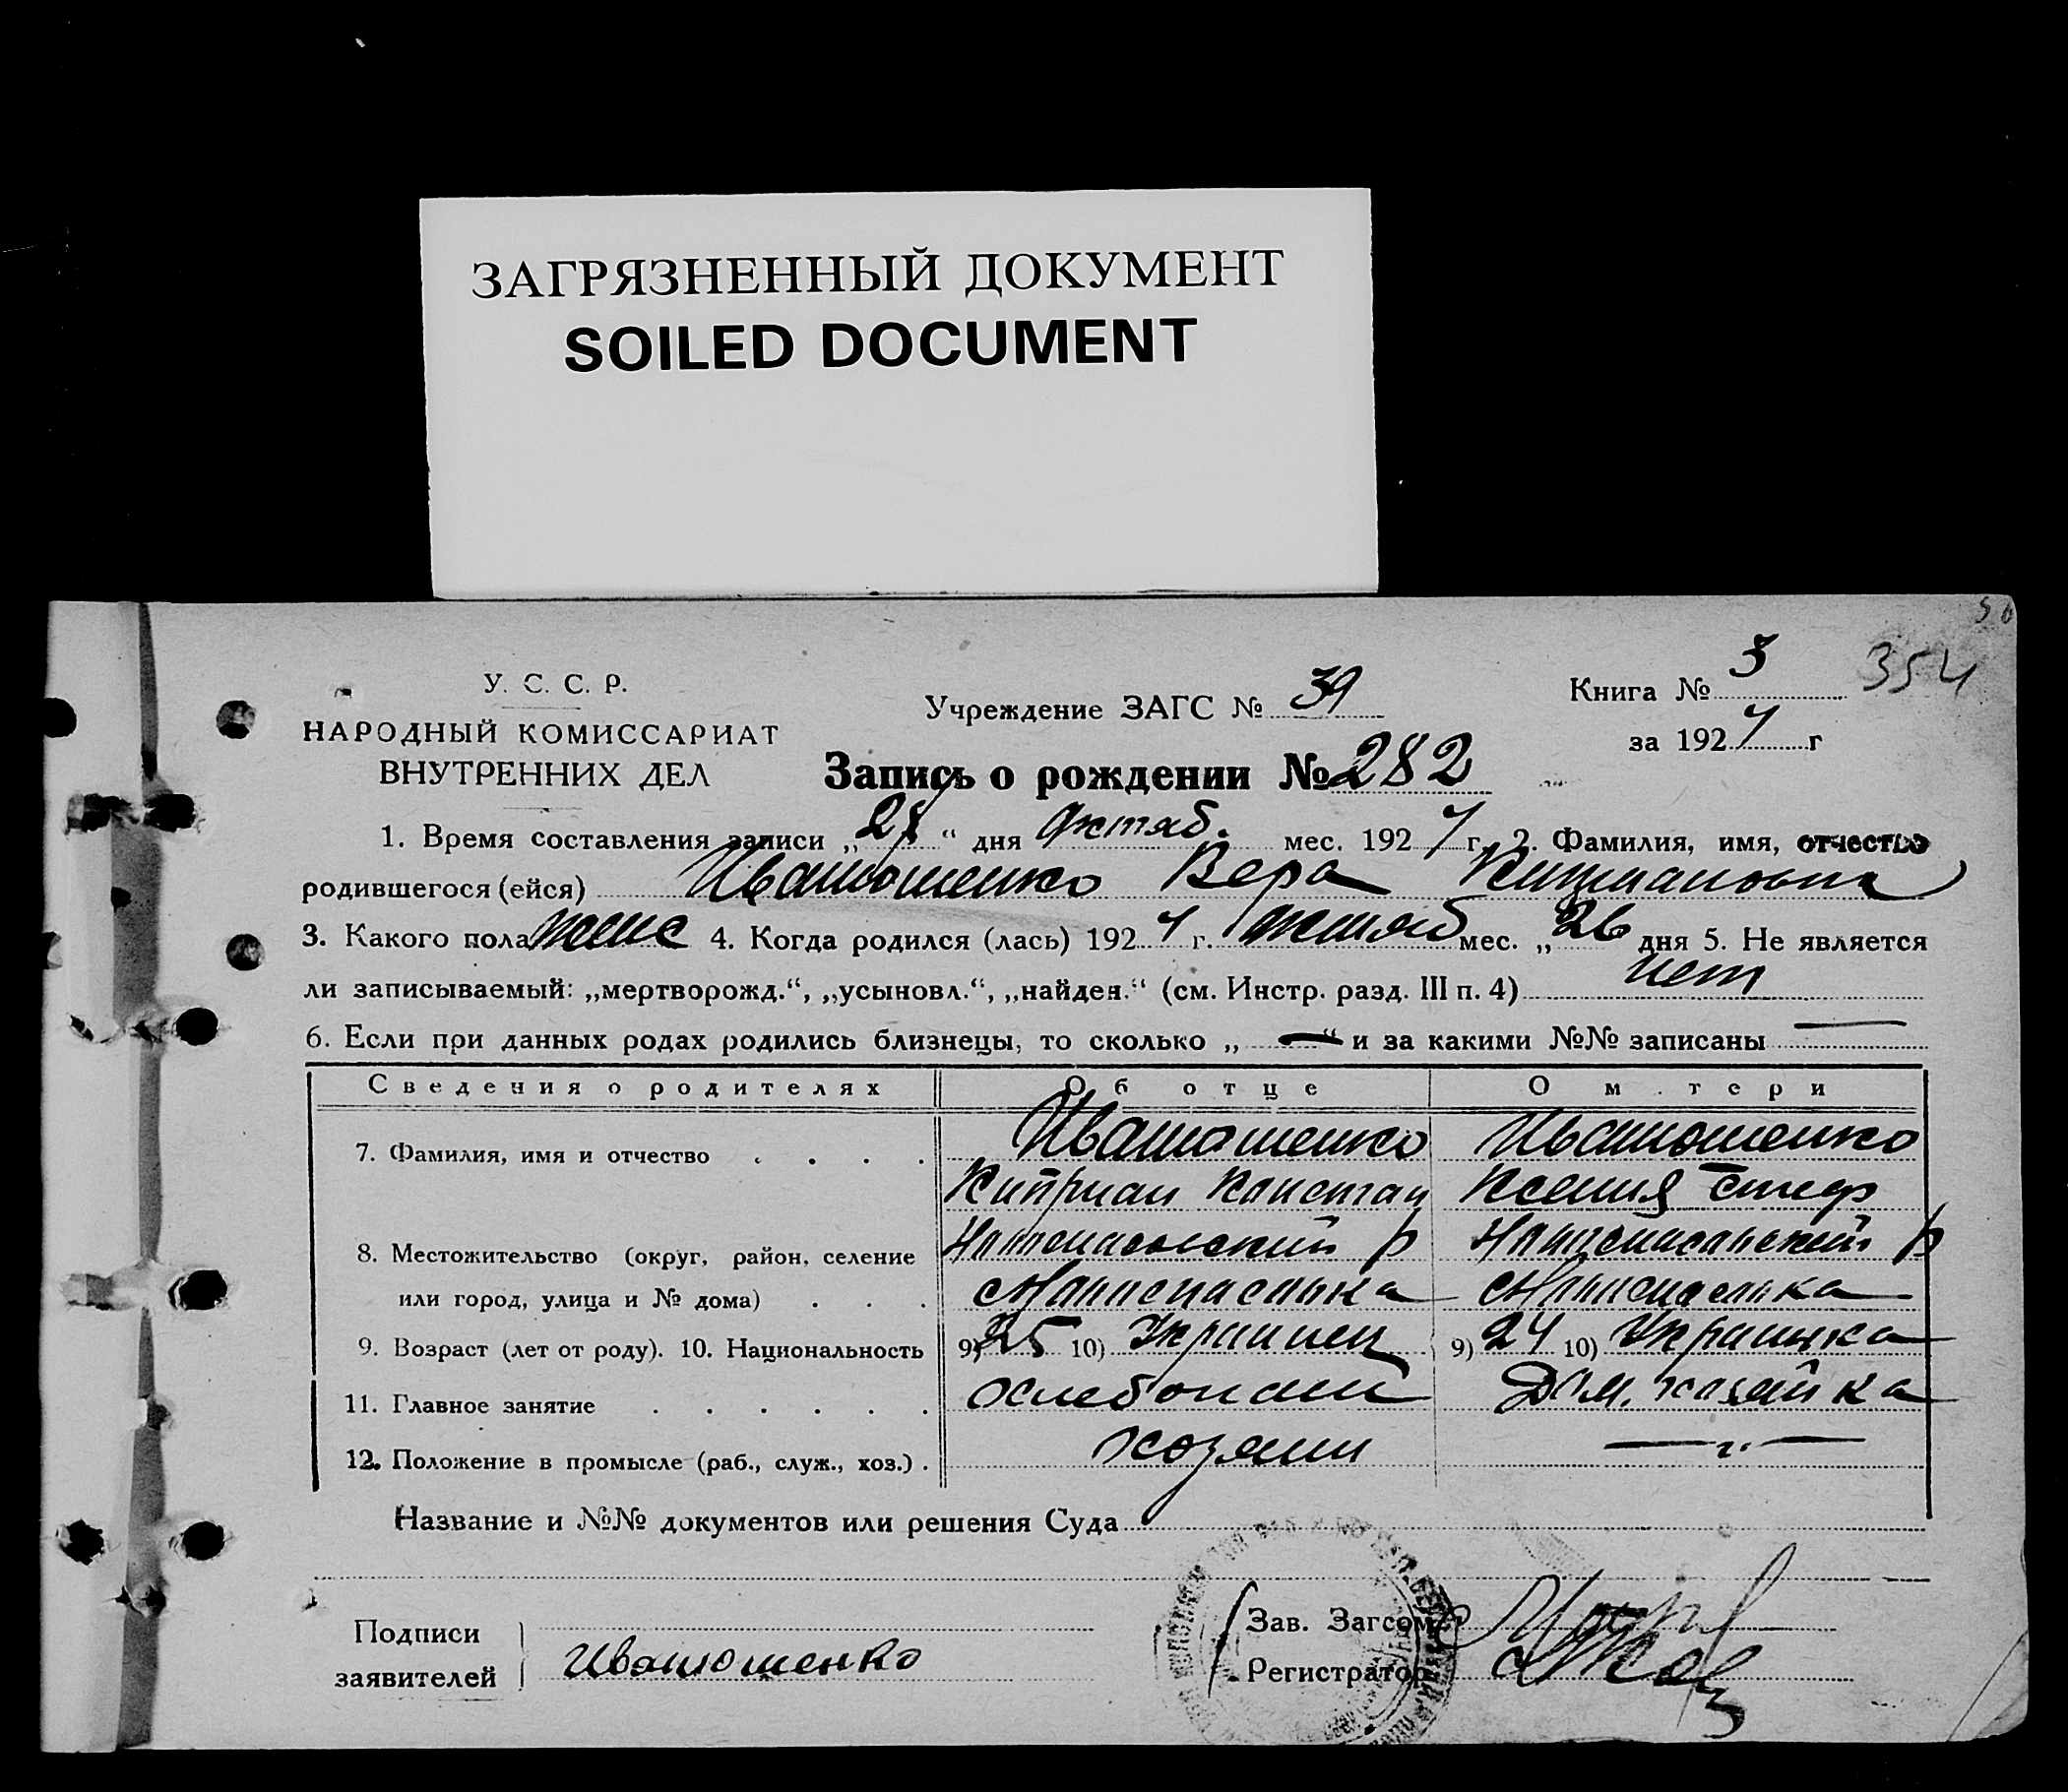 ЗАГРЯЗНЕННЫЙ ДОКУМЕНТ
SOILED DOCUMENT
354
У. С. С. Р.
НАРОДНЫЙ КОМИССАРИАТ
ВНУТРЕННИХ ДЕЛ
Учреждение ЗАГС № 39
Книга № 3
за 1927 г
Запись о рождении № 282
1. Время составления записи „28“ дня октяб. мес. 1927 г. 2. Фамилия, имя, отчество
родившегося (ейся) Иванюшенко Вера Киприановна
3. Какого пола женс 4. Когда родился (лась) 1927 г. октяб мес. „26 дня 5. Не является
ли записываемый: „мертворожд.“, „усыновл.“, „найден.“ (см. Инстр. разд. III п. 4) нет
6. Если при данных родах родились близнецы, то сколько „ — “ и за какими №№ записаны —
Сведения о родителях Об отце О м тери
7. Фамилия, имя и отчество . . . . Иванюшенко Иванюшенко
Киприан Констан Ксения Стеф
8. Местожительство (округ, район, селение р р
или город, улица и № дома) . . .
9. Возраст (лет от роду). 10. Национальность 9) 25 10) Украинец 9) 24 10) Украинка
11. Главное занятие . . . . . . хлебопаш Дом. хозяйка
12. Положение в промысле (раб., служ., хоз.) . хозяин — „ —
Название и №№ документов или решения Суда
Подписи
заявителей
Иванюшенко
Зав. Загсом
Регистратор